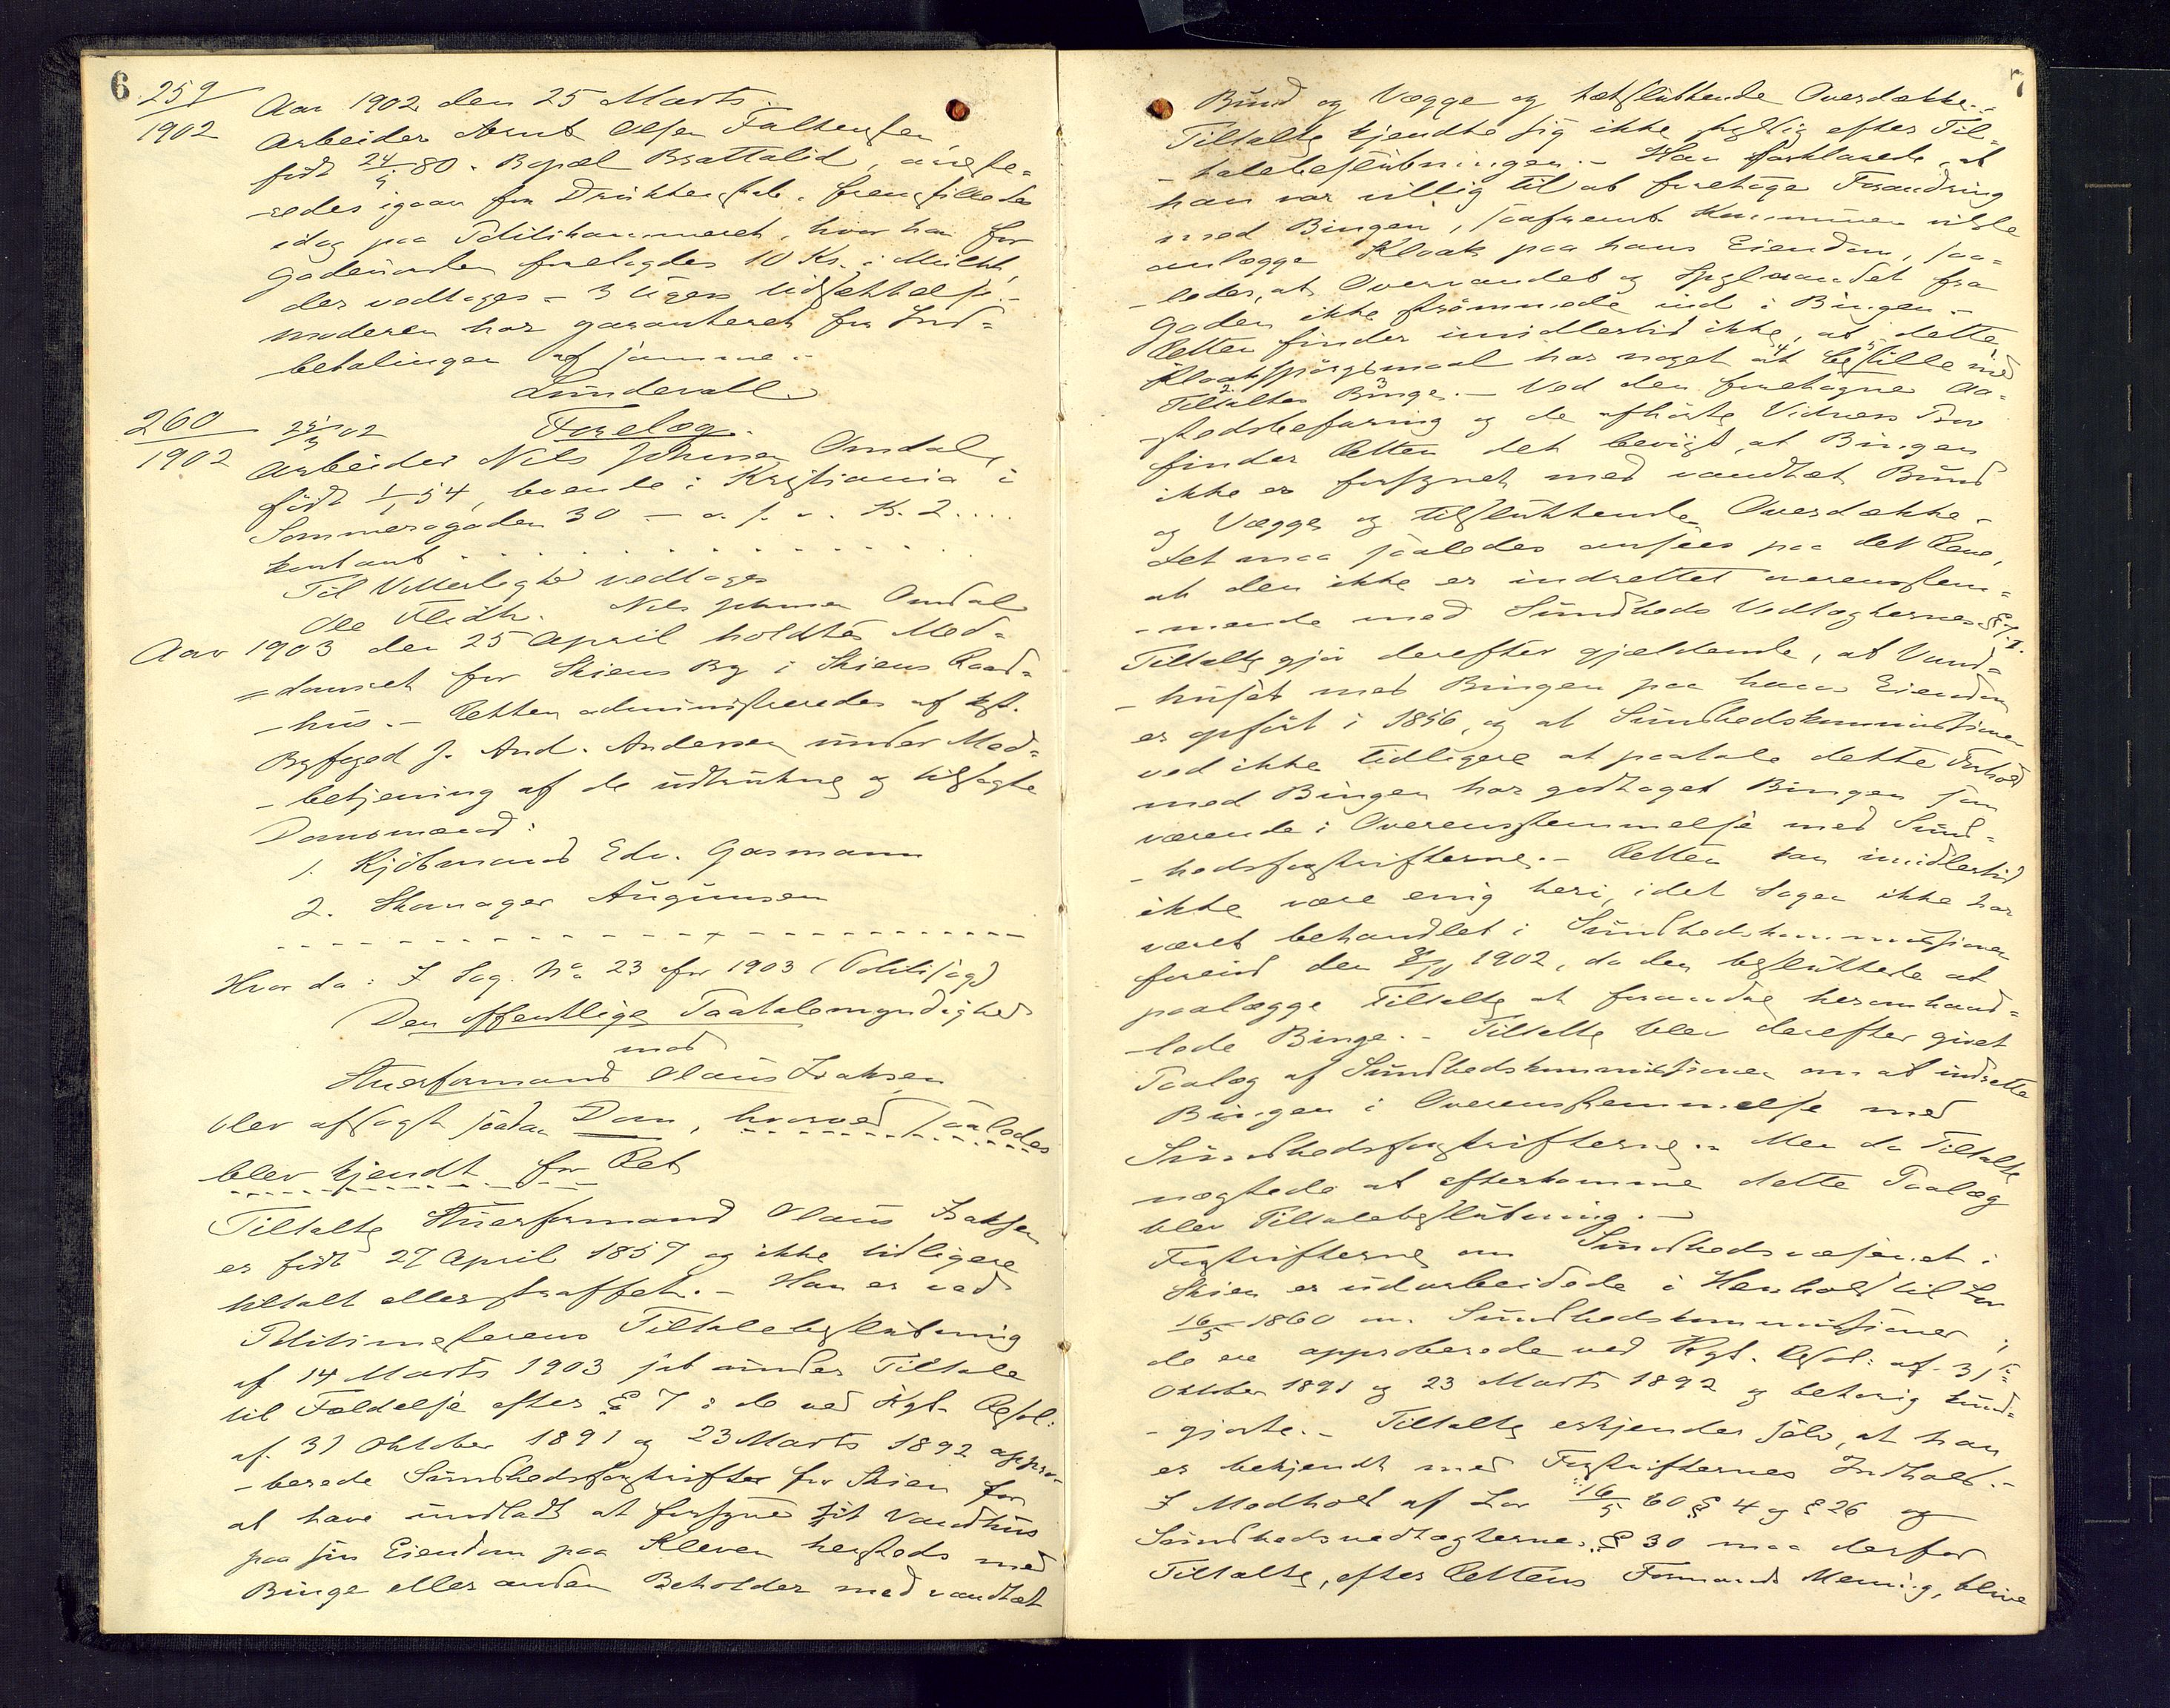 6
259
1902
Aar 1902 den 25 Marts.
Arbeider Arnt Olsen Faltensen,
født 24/9 80. Bopæl Brattalid, areste-
-redes igaar for Drukkenskab. fremstilledes
idag paa Politikammeret, hvor han for
Gadeuorden forelagdes 10 Kr. i Mulkt,
der vedtages - 3 Ugers Udsættelse. -
moderen har garanteret for Ind=
betalingen af samme. -
Lundevall.
260
1902
25/3 02 Forelæg.
Arbeider Nils Johnsen Omdal,
født 1/1 54, boende i Kristiania i
Sommerogaden 30 - o. s. v. Kr. 2....
kontant . . . . . . . . . . . .
Til Vitterlighed vedtages
Ole Flidh. Nils Johnsen Omdal
Aar 1903 den 25 April holdtes Med=
=domsret for Skiens By i Skiens Raad=
-hus. - Retten administreredes af kst.
Byfoged J. And. Andersen under Med=
-betjening af de udtrukne og tilsagte
Domsmænd:
1. Kjøbmand Edv. Gasmann
2. Skomager Augunsen
Hvor da: I Sag No 23 for 1903 (Politisag)
Den offentlige Paatalemyndighed
mod
Stuerformand Olaus Isaksen
blev afsagt saadan Dom, hvorved saaledes
blev kjendt for Ret
Tiltalte Stuerformand Olaus Isaksen
er født 27 April 1857 og ikke tidligere
tiltalt eller straffet. - Han er ved
Politimesterens Tiltalebeslutning
af 14 Marts 1903 sat under Tiltale
til Fældelse efter § 7 i de ved Kgl. Resol:
af. 31 Oktober 1891 og 23 Marts 1892 appro-
-berede Sundhedsforskrifter for Skien for
at have undladt at forsyne sit Vandhus
paa sin Eiendom paa Kleven hersteds med
Binge eller anden Beholder med vandtæt
7
Bund og Vægge og tætsluttende Overdække. -
Tiltalte kjendte sig ikke skyldig efter Til=
-talebeslutningen. - Han forklarede, at
han var villig til at foretage Forandring
med Bingen, saafremt Kommunen vilde
anlægge Kloak paa hans Eiendom, saa=
-ledes, at Overvandet og Spylvandet fra
Gaden ikke strømmede ind i Bingen. -
Retten finder imidlertid ikke, at dette
Kloakspørgsmaal har noget at bestille med
Tiltaltes Binge. - Ved den foretagne Aa=
-stedsbefaring og de afhørte Vidners Prov
finder Retten det bevist, at Bingen
ikke er forsynet med vandtæt Bund
og Vægge og tilsluttende Overdække -
Det maa saaledes ansees paa det Rene,
at den ikke er indrettet overensstem=
-mende med Sundheds Vedtægternes § 7.
Tiltalte gjør derefter gjældende, at Vand=
-huset med Bingen paa hans Eiendom
er opført i 1856, og at Sundhedskommissionen
ved ikke tidligere at paatale dette Forhold
med Bingen har godtaget Bingen som
værende i Overensstemmelse med Sund=
-hedsforskrifterne. - Retten kan imidlertid
ikke være enig heri, idet Sagen ikke har
været behandlet i Sundhedskommissionen
forend den 3/11 1902, da den besluttede at
paalægge Tiltalte at forandre heromhand=
-lede Binge. - Tiltalte blev derefter givet
Paalæg af Sundhedskommissionen om at indrette
Bingen i Overensstemmelse med
Sundhedsforskrifterne. - Men da Tiltalte
nægtede at efterkomme dette Paalæg
blev Tiltalebeslutning. -
Forskrifterne om Sundhedsvæsenet i
Skien er udarbeidede i Henhold til Lov
16/5 1860 om Sundhedskommissioner;
de ere approberede ved Kgl. Resol: af. 31te
Oktober 1891 og 23 Marts 1892 og behørig kund=
-gjorte. - Tiltalte erkjender selv, at han
er bekjendt med Forskrifternes Indhold. -
I Medhold af Lov 16/5 60 § 4 og § 26 og
Sundhedsvedtægterne. § 30 maa derfor
Tiltalte, efter Rettens Formands Mening, blive